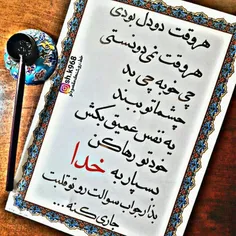 هر وقت دو دل بودی
هر وقت نمی دونستی
چی خوبه چی بد
چشماتو ببند
یه نفس عمیق بکش
خودتو رها کن
بسپار به خدا
بذار جواب سوالت رو تو قلبت
جاری کنه ...